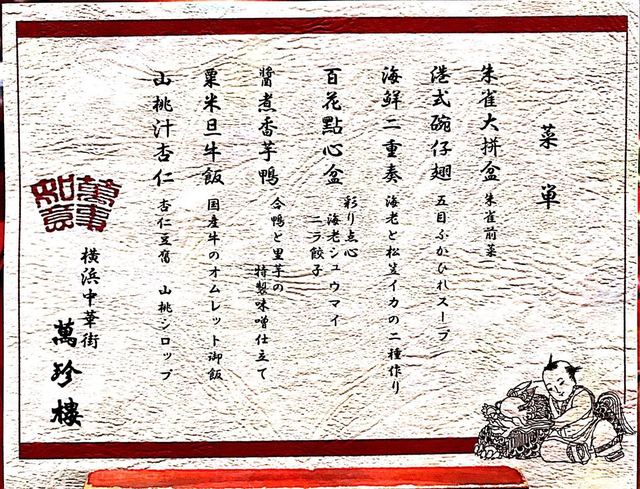 菜単
朱雀大拼盆 朱雀前菜
港式碗仔翅 五目ふかひれスープ
海鮮二重奏 海老と松笠イカの二種作り
百花點心盆 彩り点心
海老シュウマイ
ニラ餃子
醬煮香芋鴨 合鴨と里芋の
特製味噌仕立て
粟米旦牛飯 国産牛のオムレット御飯
山桃汁杏仁 杏仁豆腐 山桃シロップ
萬事
如意
横浜中華街
萬珍樓